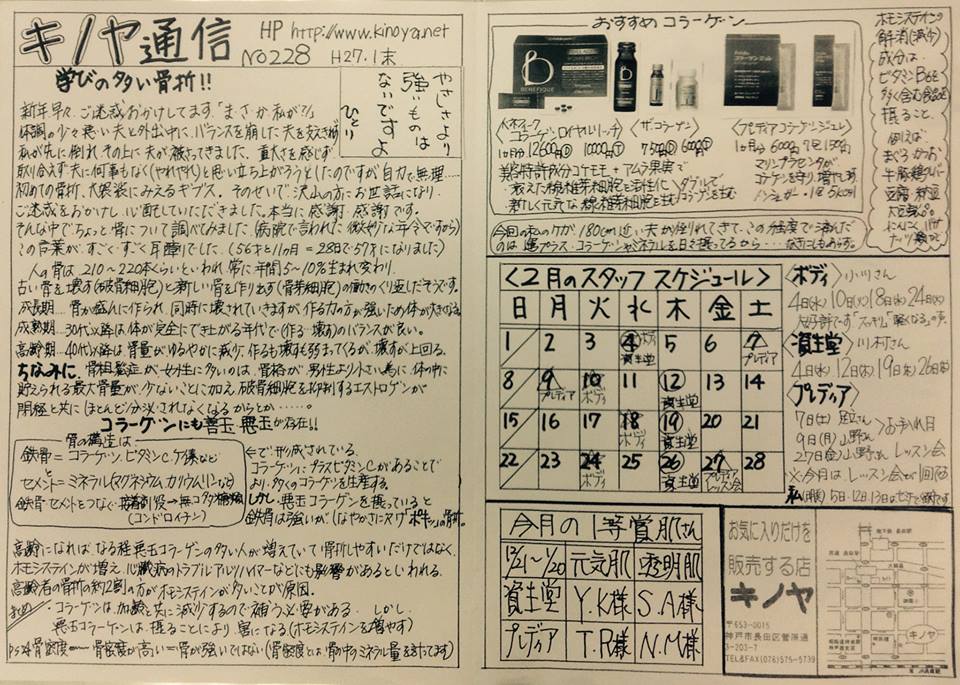 キノヤ通信
HP http://www.kinoya.net
NO228 H27.1末
学びの多い骨折!!
やさしさより
強いものは
ないですよ
ひとり
新年早々、ご迷惑おかけしてます「まさか私が?」
体調の少々悪い夫と外出中に、バランスを崩した夫を支えきれず
私が先に倒れ、その上に夫が被さってきました。重大さを感じず
取り合えず夫に何事もなく(やれやれ)と思い立ち上がろうとしたのですが自力で無理…
初めての骨折、大袈裟にみえるギブス。そのせいで沢山の方にお世話になり
ご迷惑をおかけし心配していただきました。本当に感謝感謝です。
そんな中でちょっと骨について調べてみました(病院で言われた「微妙な年令ですから」
この言葉がすごくすごく耳障りでした(56才と11ヶ月=28日で57才になりました)
人の骨は210〜220本くらいといわれ常に年間5〜10%生まれ変わり
古い骨を壊す(破骨細胞)と新しい骨を作り出す(骨芽細胞)の働きのくり返しだそうです。
成長期…骨が盛んに作られ同時に壊されていきますが作る力の方が強いため体が大きくなる
成熟期…30代以降は体が完全にでき上がる年代で(作る・壊す)のバランスが良い。
高齢期…40代以降は骨量がゆるやかに減少、作るも壊すも弱まってくるが、壊すが上回る。
ちなみに、骨粗鬆症が女性に多いのは、骨格が男性より小さい為に、体の中に
貯えられる最大骨量が少ないことに加え、破骨細胞を抑制するエストロゲンが
閉経と共にほとんど分泌されなくなるからとか……。
コラーゲンにも善玉・悪玉が存在!!
骨の構造は
鉄骨=コラーゲン、ビタミンC、ケイ素など
と
セメント=ミネラル(マグネシウム、カリウム、リンなど)
鉄骨とセメントとつなぐ接着剤役→ムコ多糖類
(コンドロイチン)
←で形成されている
コラーゲンにプラスビタミンCがあることで
より多くのコラーゲンを生産する
しかし、悪玉コラーゲンを摂っていると
鉄骨は強いが、しなやかさに欠け"ポキッ"の骨折。
高齢になれば、なる程悪玉コラーゲンの多い人が増えていて骨折しやすいだけではなく、
ホモシステインが増え、心臓病のトラブル・アルツハイマーなどにも影響があるといわれる。
高齢者の骨折の約2割の方がホモシステインが多いことが原因。
まとめ コラーゲンは加齢と共に減少するので補う必要がある。しかし
悪玉コラーゲンは、摂ることにより害になる(ホモシステインを増やす)
骨密度が高い=骨が強いではない(骨密度とは、骨中のミネラル量を計ってます)
おすすめコラーゲン
BENEFIQUE
ベネフィーク
コラーゲンロイヤルリッチ
1ヶ月分 12600円 10000円
ザ・コラーゲン
プレディアコラーゲンジュレ
1ヶ月分 6000円
マリンプラセンタが
コラーゲンを守り、増やし
ノンシュガー
美容特許成分コケモモ+アムラ果実で
衰えた線維芽細胞を活性化
ダブルで
新しく元気な線維芽細胞を生む
コラーゲンを生む
ホモシステインの
解消(減少)
成分は
ビタミンB6を
多く含む食品を
摂ること。
例えば、
まぐろ・かつお
牛豚鶏レバー
豆腐・納豆
大豆
にんにく
ナッツ類など
今回の私のケガが180cm近い夫が倒れてきて、この程度で済んだ
のは、運プラス、コラーゲンやミネラルを日々摂ってるから……
〈2月のスタッフスケジュール〉
日 月 火 水 木 金 土
1 2 3 4 ボディ 資生堂 5 6 7 プレディア
8 9 プレディア 10 ボディ 11 12 資生堂 13 14
15 16 17 18 ボディ 19 資生堂 20 21
22 23 24 ボディ 25 26 資生堂 27 プレディア レッスン会 28
〈ボディ〉小川さん
4日(水)10(火)18(水)24(火)
〈資生堂〉川村さん
4日(水)12(木)19(木)26(木)
〈プレディア〉
7日(土)
9日(月)山野さん
お手入れ日
27日(金)山野さん レッスン会
※今月はレッスン会が1回
今月の1等賞肌さん
12/21〜1/20 元気肌 透明肌
資生堂 Y.K様 S.A様
プレディア T.R様 N.M様
お気に入りだけを
販売する店
キノヤ
〒653-0015
神戸市長田区菅原通
3-203-7
TEL&FAX(078)575-5739
キノヤ